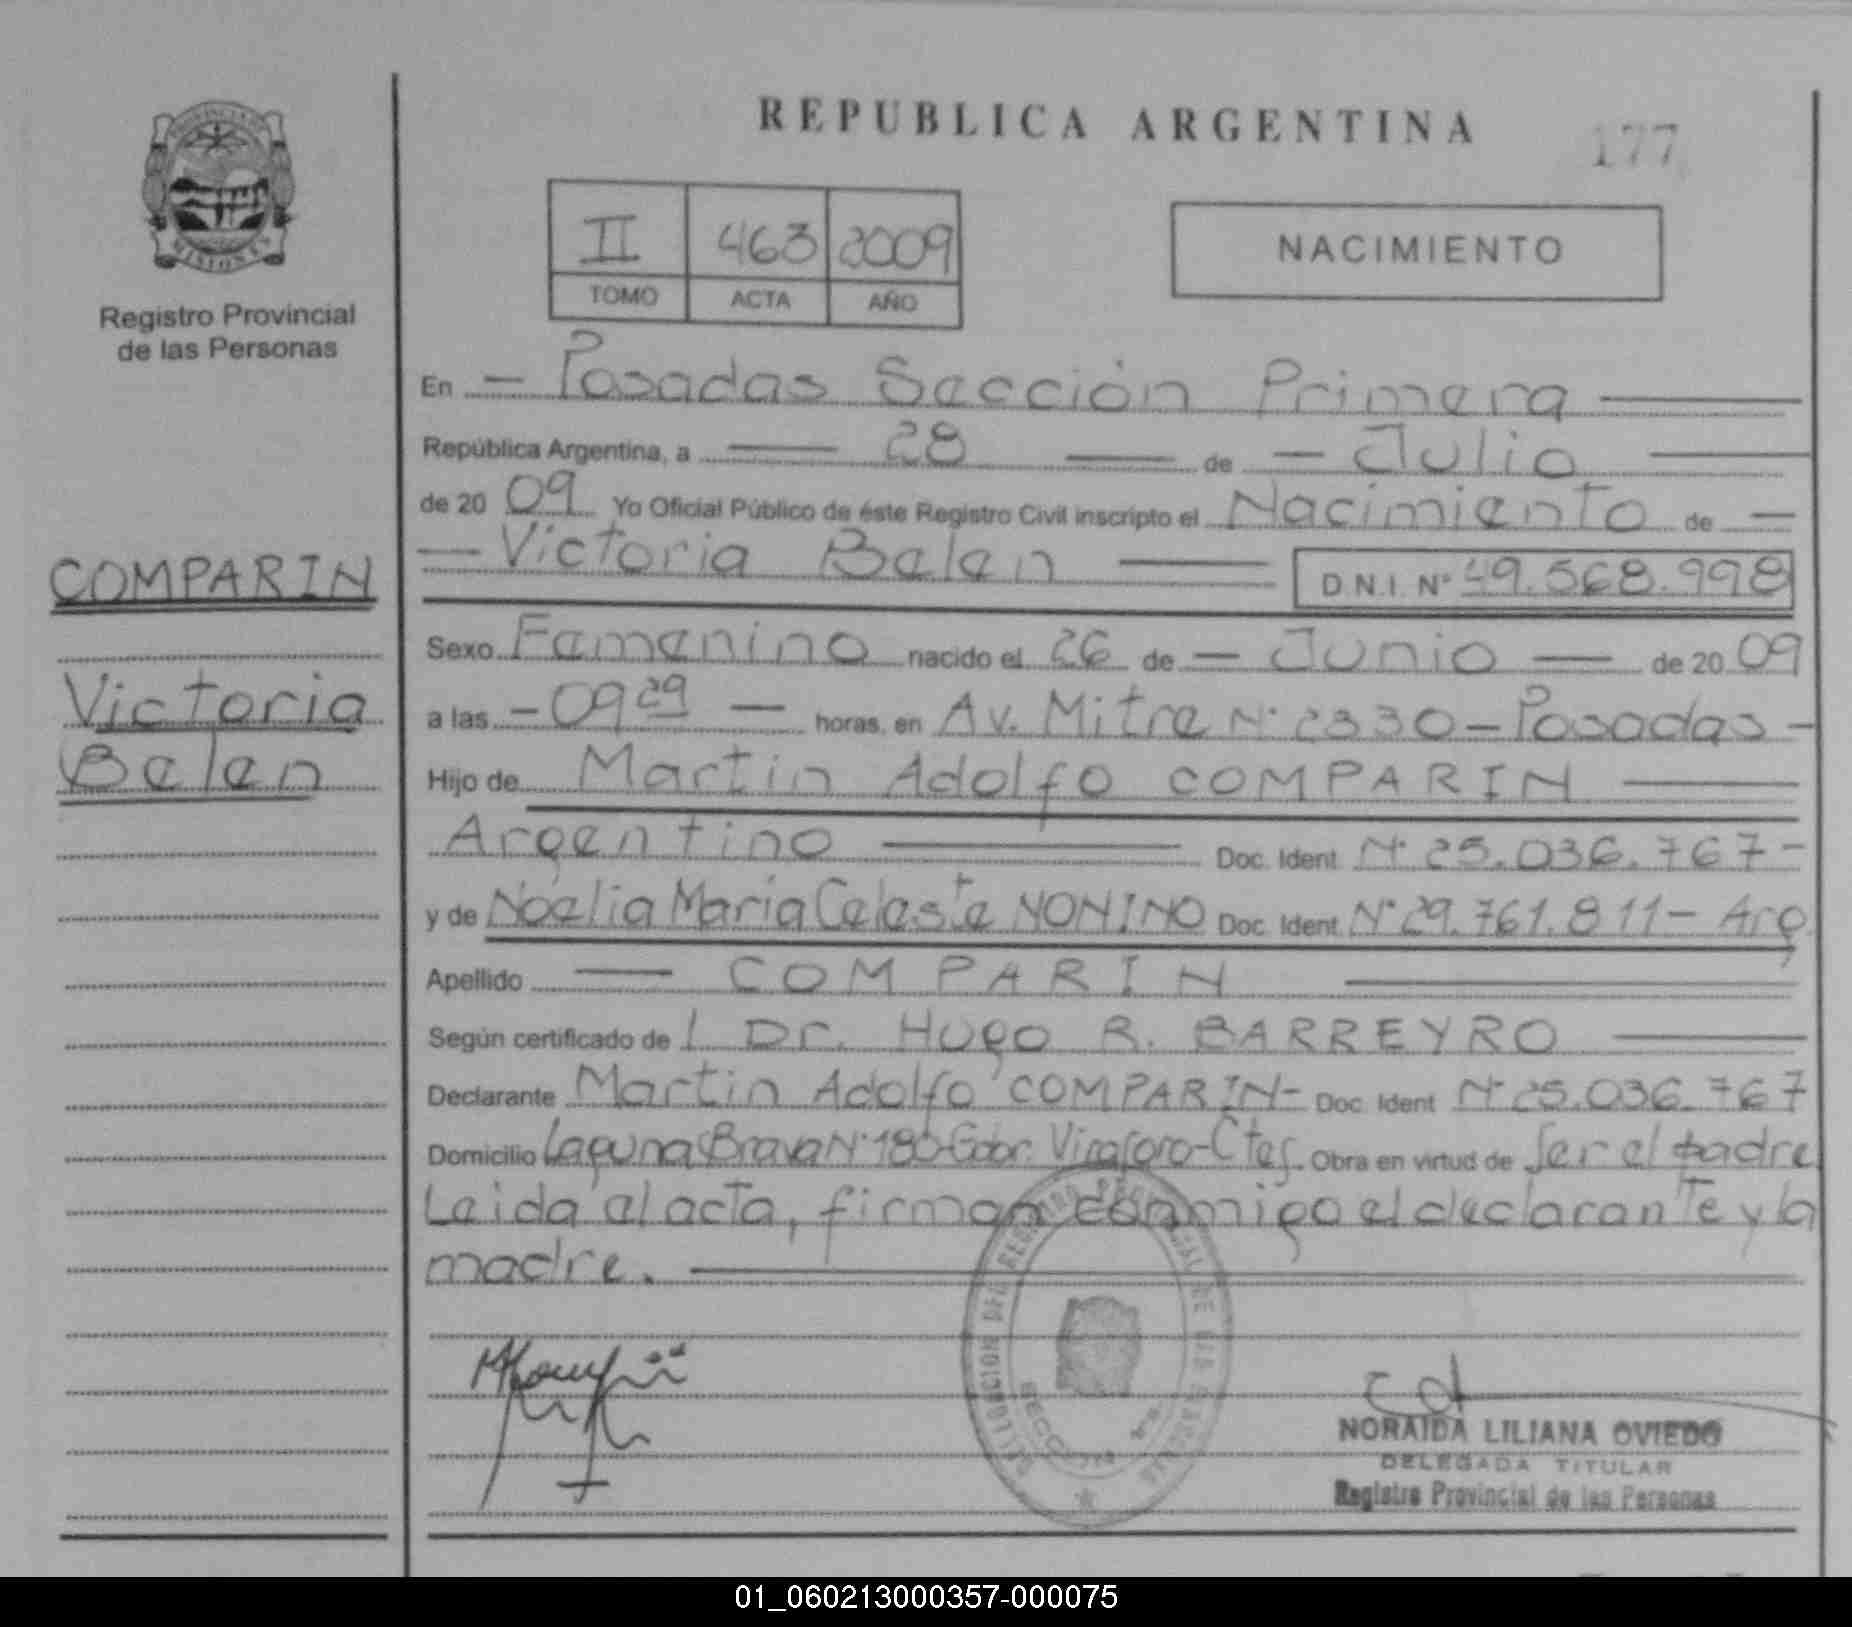 REPUBLICA ARGENTINA
177
PROVINCIA DE MISIONES
Registro Provincial
de las Personas
II 463 2009
TOMO ACTA AÑO
NACIMIENTO
En — Posadas Sección Primera —
República Argentina, a — 28 — de — Julio —
de 20 09 Yo Oficial Público de éste Registro Civil inscripto el Nacimiento de —
— Victoria Belen — D.N.I. Nº 49.568.998
COMPARIN
Victoria
Belen
Sexo Femenino nacido el 26 de — Junio — de 20 09
a las — 09 29 — horas, en Av. Mitre Nº 2330 — Posadas —
Hijo de Martin Adolfo COMPARIN —
Argentino — Doc. Ident Nº 25.036.767 —
y de Noelia Maria Celeste NONINO Doc. Ident Nº 29.761.811 — Arg
Apellido — COMPARIN —
Según certificado de l Dr. Hugo R. BARREYRO —
Declarante Martin Adolfo COMPARIN — Doc. Ident Nº 25.036.767
Domicilio Laguna Brava Nº 180-Gobr. Virasoro-Ctes. Obra en virtud de ser el padre
Leida el acta, firman conmigo el declarante y la
madre. —
DELEGACION DEL REGISTRO PROVINCIAL DE LAS PERSONAS
SECCION 1ª
NORAIDA LILIANA OVIEDO
DELEGADA TITULAR
Registro Provincial de las Personas
01_060213000357-000075